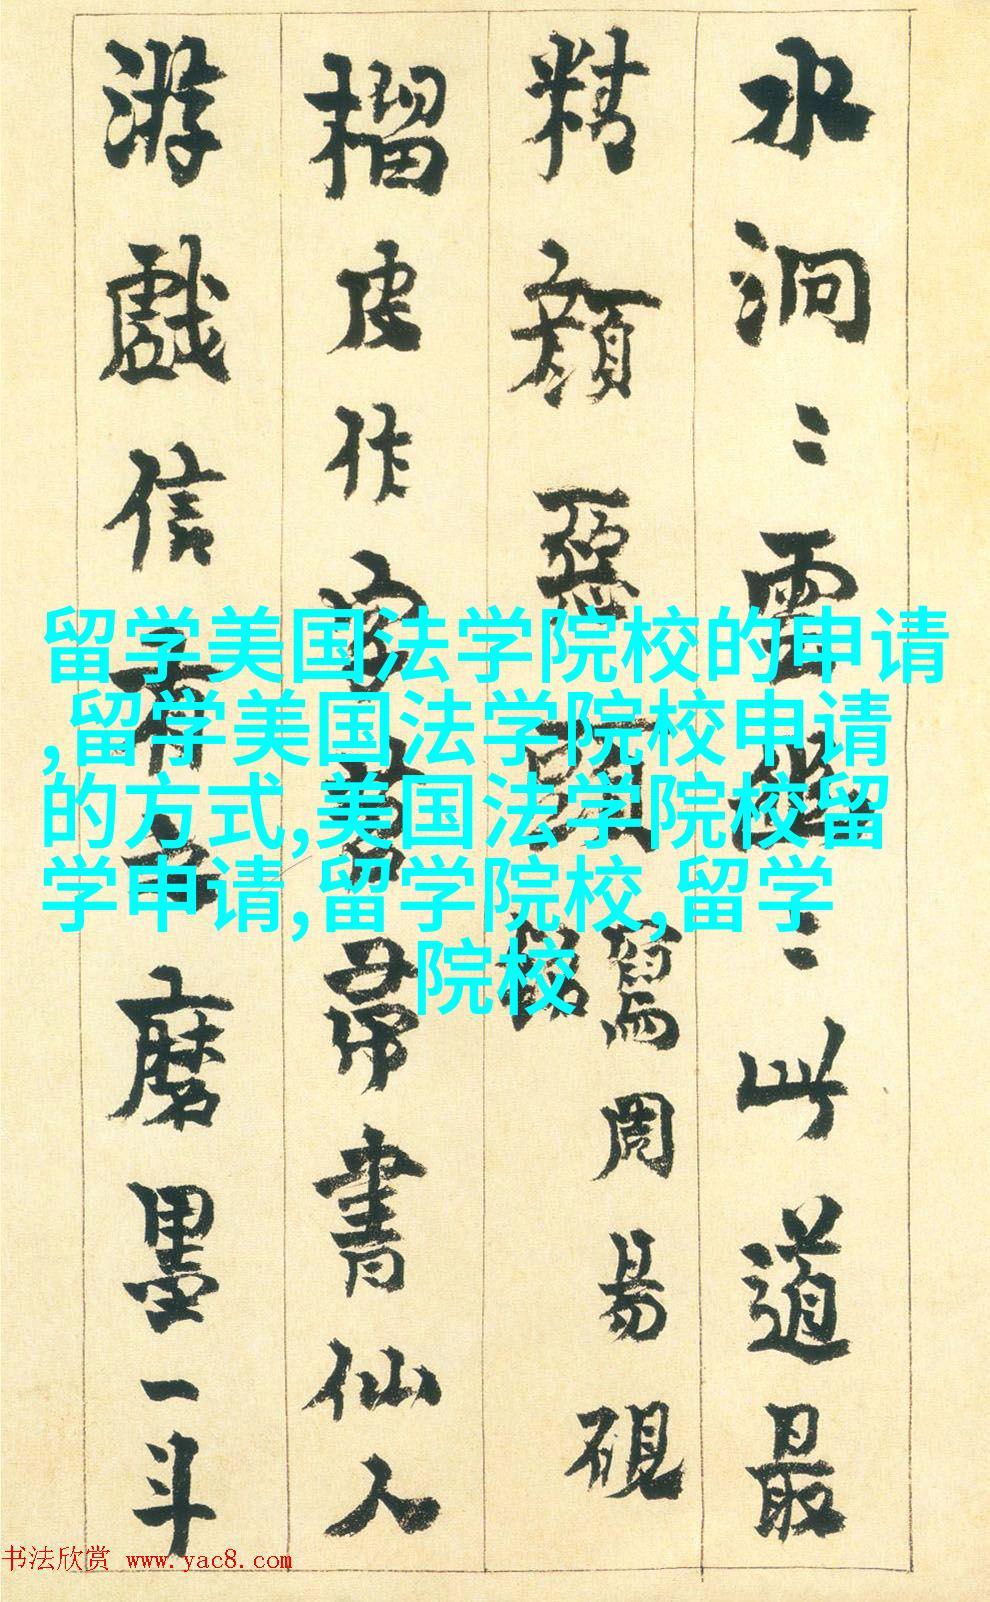 水洞〻雷〻此道最
精顔惡寫周易硯
榴皮作字帚書仙人
游戲信有磨墨一斗
留学美国法学院校的申请
,留学美国法学院校申请
的方式,美国法学院校留
学申请,留学院校,留学
院校
书法欣赏 www.yac8.com